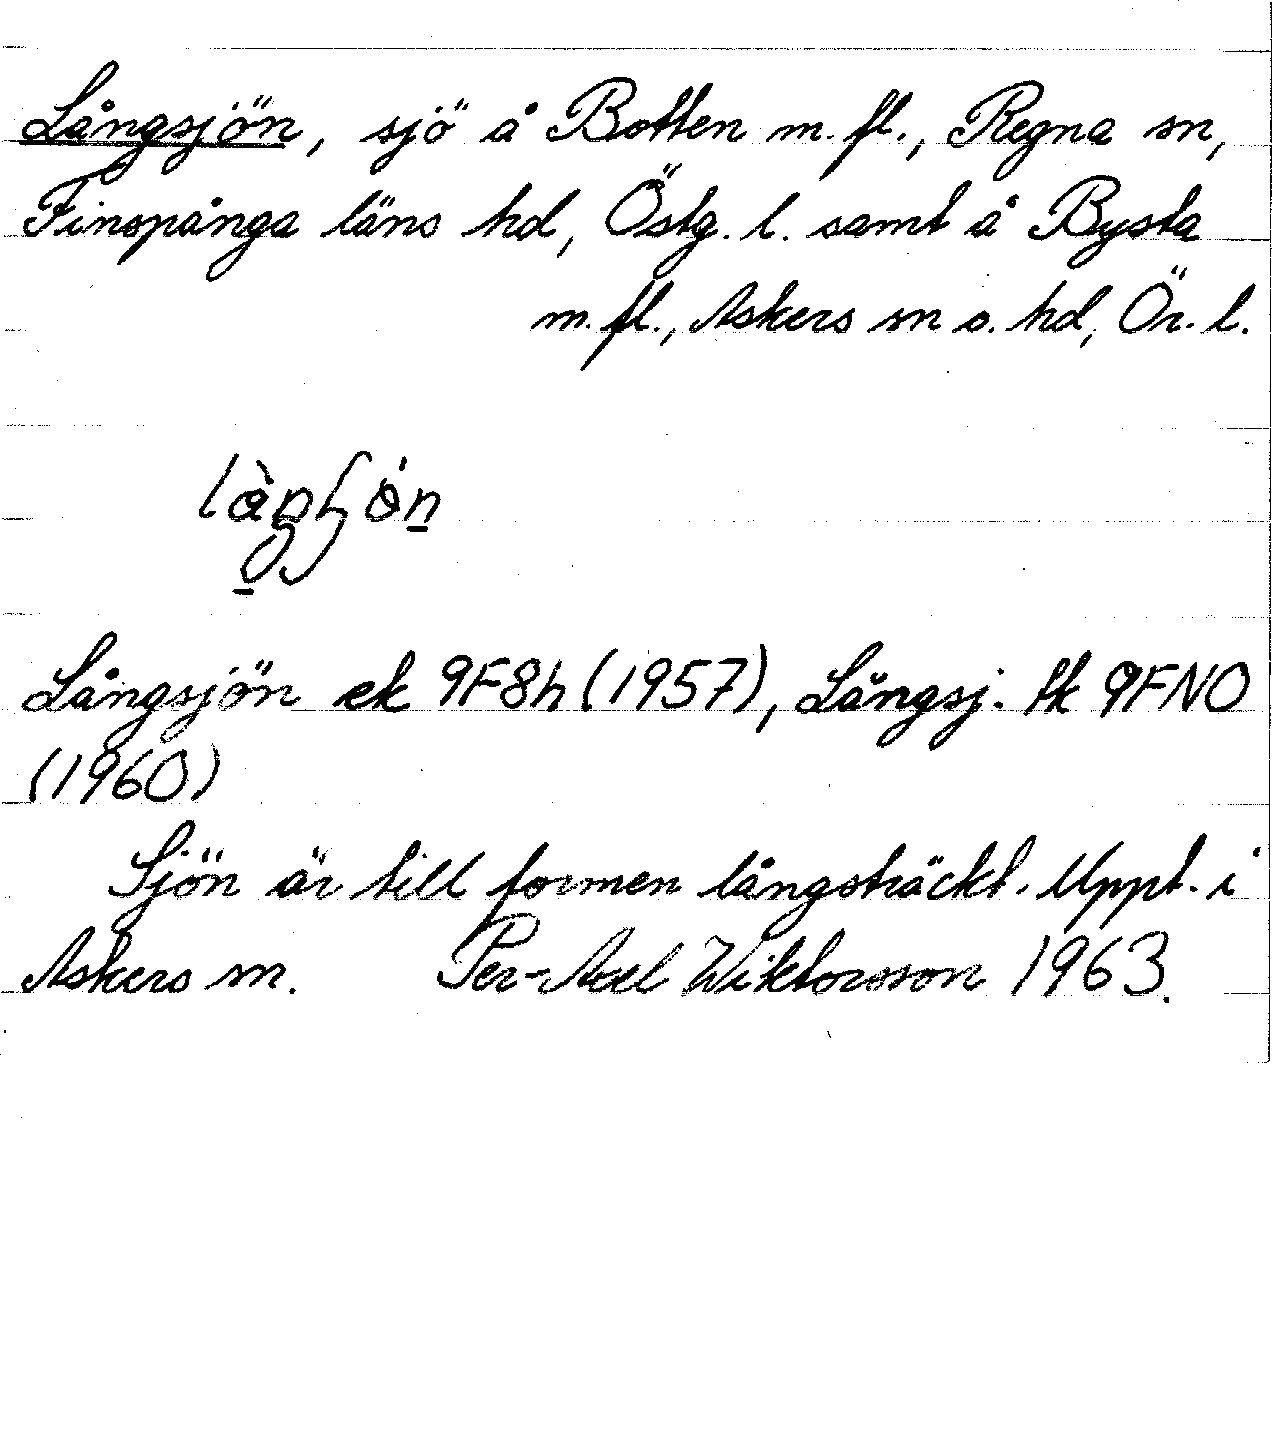 Långsjön, sjö å Botten m. fl., Regna sn,
Finspånga läns hd, Östg. l. samt å Bysta
m. fl., Askers sn o. hd, Ör. l.
Långsjön ek 9F8h (1957), Långsj. tk 9FNO
(1960)
Sjön är till formen långsträckt. Uppt. i
Askers sn. Per-Axel Wiktorsson 1963.